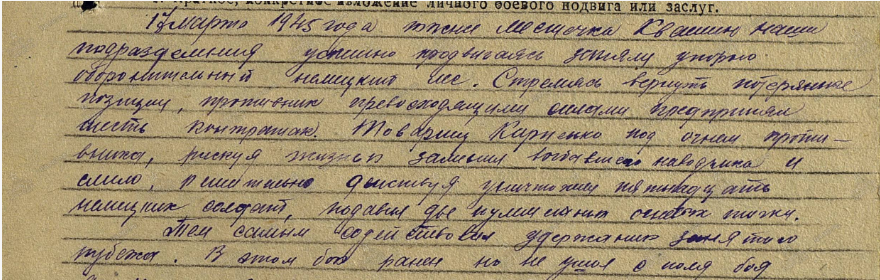 конкретное изложение личного боевого подвига или заслуг.
17 марта 1945 года местечка наши
подразделения успешно продвигаясь заняли упорно
оборонительный немецкий лес. Стремясь вернуть потерянные
позиции, противник превосходящими силами предпринял
шесть контратак. Товарищ Карпенко под огнем проти-
вника, рискуя жизнью заменил выбывшего наводчика и
смело, решительно действуя уничтожил пятнадцать
немецких солдат, подавил две пулеметных точки.
Тем самым содействовал удержанию занятого
рубежа. В этом бою ранен но не ушел с поля боя